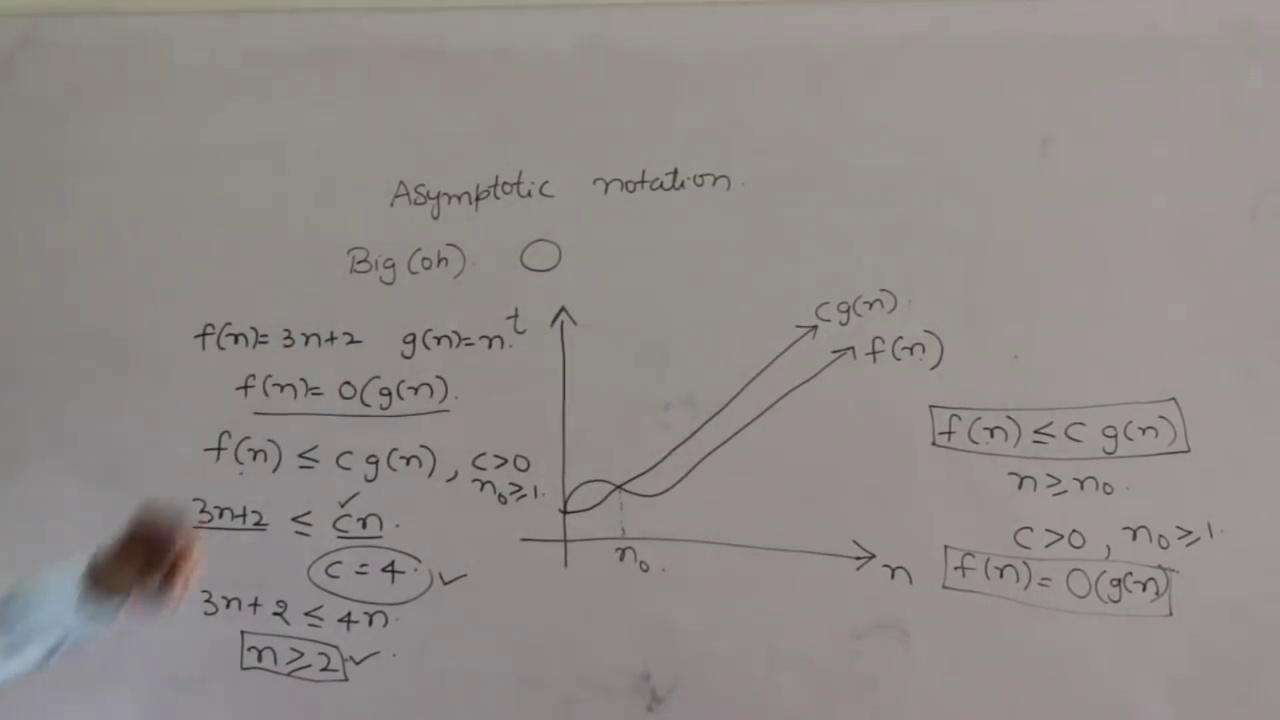 Asymptotic notation.
Big(oh). O
f(n)= 3n+2 g(n)=n.
t
f(n)= O(g(n).
f(n) ≤ c g(n), c>0
n₀≥1.
3n+2 ≤ cn.
c=4.
3n+2 ≤ 4n.
n≥2
cg(n).
f(n)
n₀.
n
f(n) ≤ c g(n)
n≥n₀.
c>0, n₀≥1.
f(n)= O(g(n)